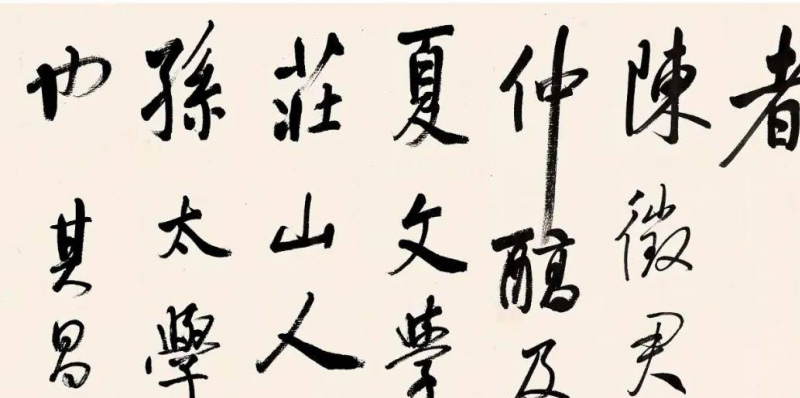 者
陳徵君
仲醇及
夏文學
莊山人
孫太學
也其昌